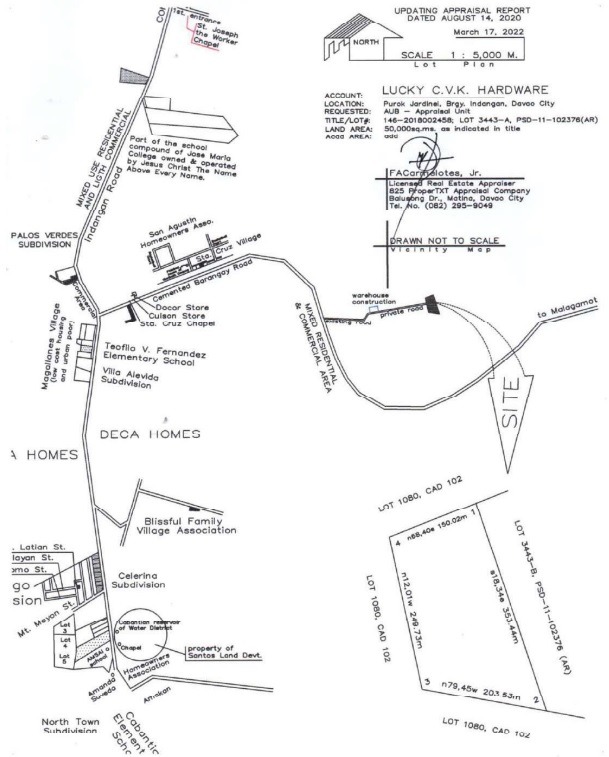 UPDATING APPRAISAL REPORT
DATED AUGUST 14, 2020
March 17, 2022
NORTH
SCALE 1 : 5,000 M.
Lot Plan
ACCOUNT: LUCKY C.V.K. HARDWARE
LOCATION: Purok Jardinsi, Brgy. Indangan, Davao City
REQUESTED: AUB - Appraisal Unit
TITLE/LOT#: 146-2018002458; LOT 3443-A, PSD-11-102376(AR)
LAND AREA: 50,000sq.ms. as indicated in title
Road AREA: add
Licensed Real Estate Appraiser
825 ProperTXT Appraisal Company
Balusong Dr., Matina, Davao City
Tel. No. (082) 295-9049
DRAWN NOT TO SCALE
Vicinity Map
1st. entrance
St. Joseph
the Worker
Chapel
MIXED USE RESIDENTIAL
AND LIGTH COMMERCIAL
Indangan Road
Part of the school
compound of Jose Maria
College owned & operated
by Jesus Christ The Name
Above Every Name.
PALOS VERDES
SUBDIVISION
Commercial
Area
San Agustin
Homeowners Asso.
Sta. Cruz Village
Cemented Barangay Road
Docor Store
Cuison Store
Sta. Cruz Chapel
Magallanes Village
(low cost housing
and urban poor)
Teofilo V. Fernandez
Elementary School
Villa Alevida
Subdivision
MIXED RESIDENTIAL
& COMMERCIAL AREA
warehouse
construction
existing road
private road
to Malagamot
SITE
DECA HOMES
A HOMES
Blissful Family
Village Association
. Latian St.
layan St.
omo St.
go
sion
Mt. Mayon St.
Celerina
Subdivision
Lot
3
Lot
4
Lot
5
AMSAI
school
Cabantian reservoir
of Water District
Chapel
property of
Santos Land Devt.
Homeowners
Association
Amanda
North Town
Subdivision
LOT 1080, CAD 102
4 n68,40e 150.02m 1
LOT 1080, CAD 102
n12,01w 249.73m
s18,34e 353.44m
LOT 3443-B, PSD-11-102376 (AR)
3 n79,45w 203.83m 2
LOT 1080, CAD 102